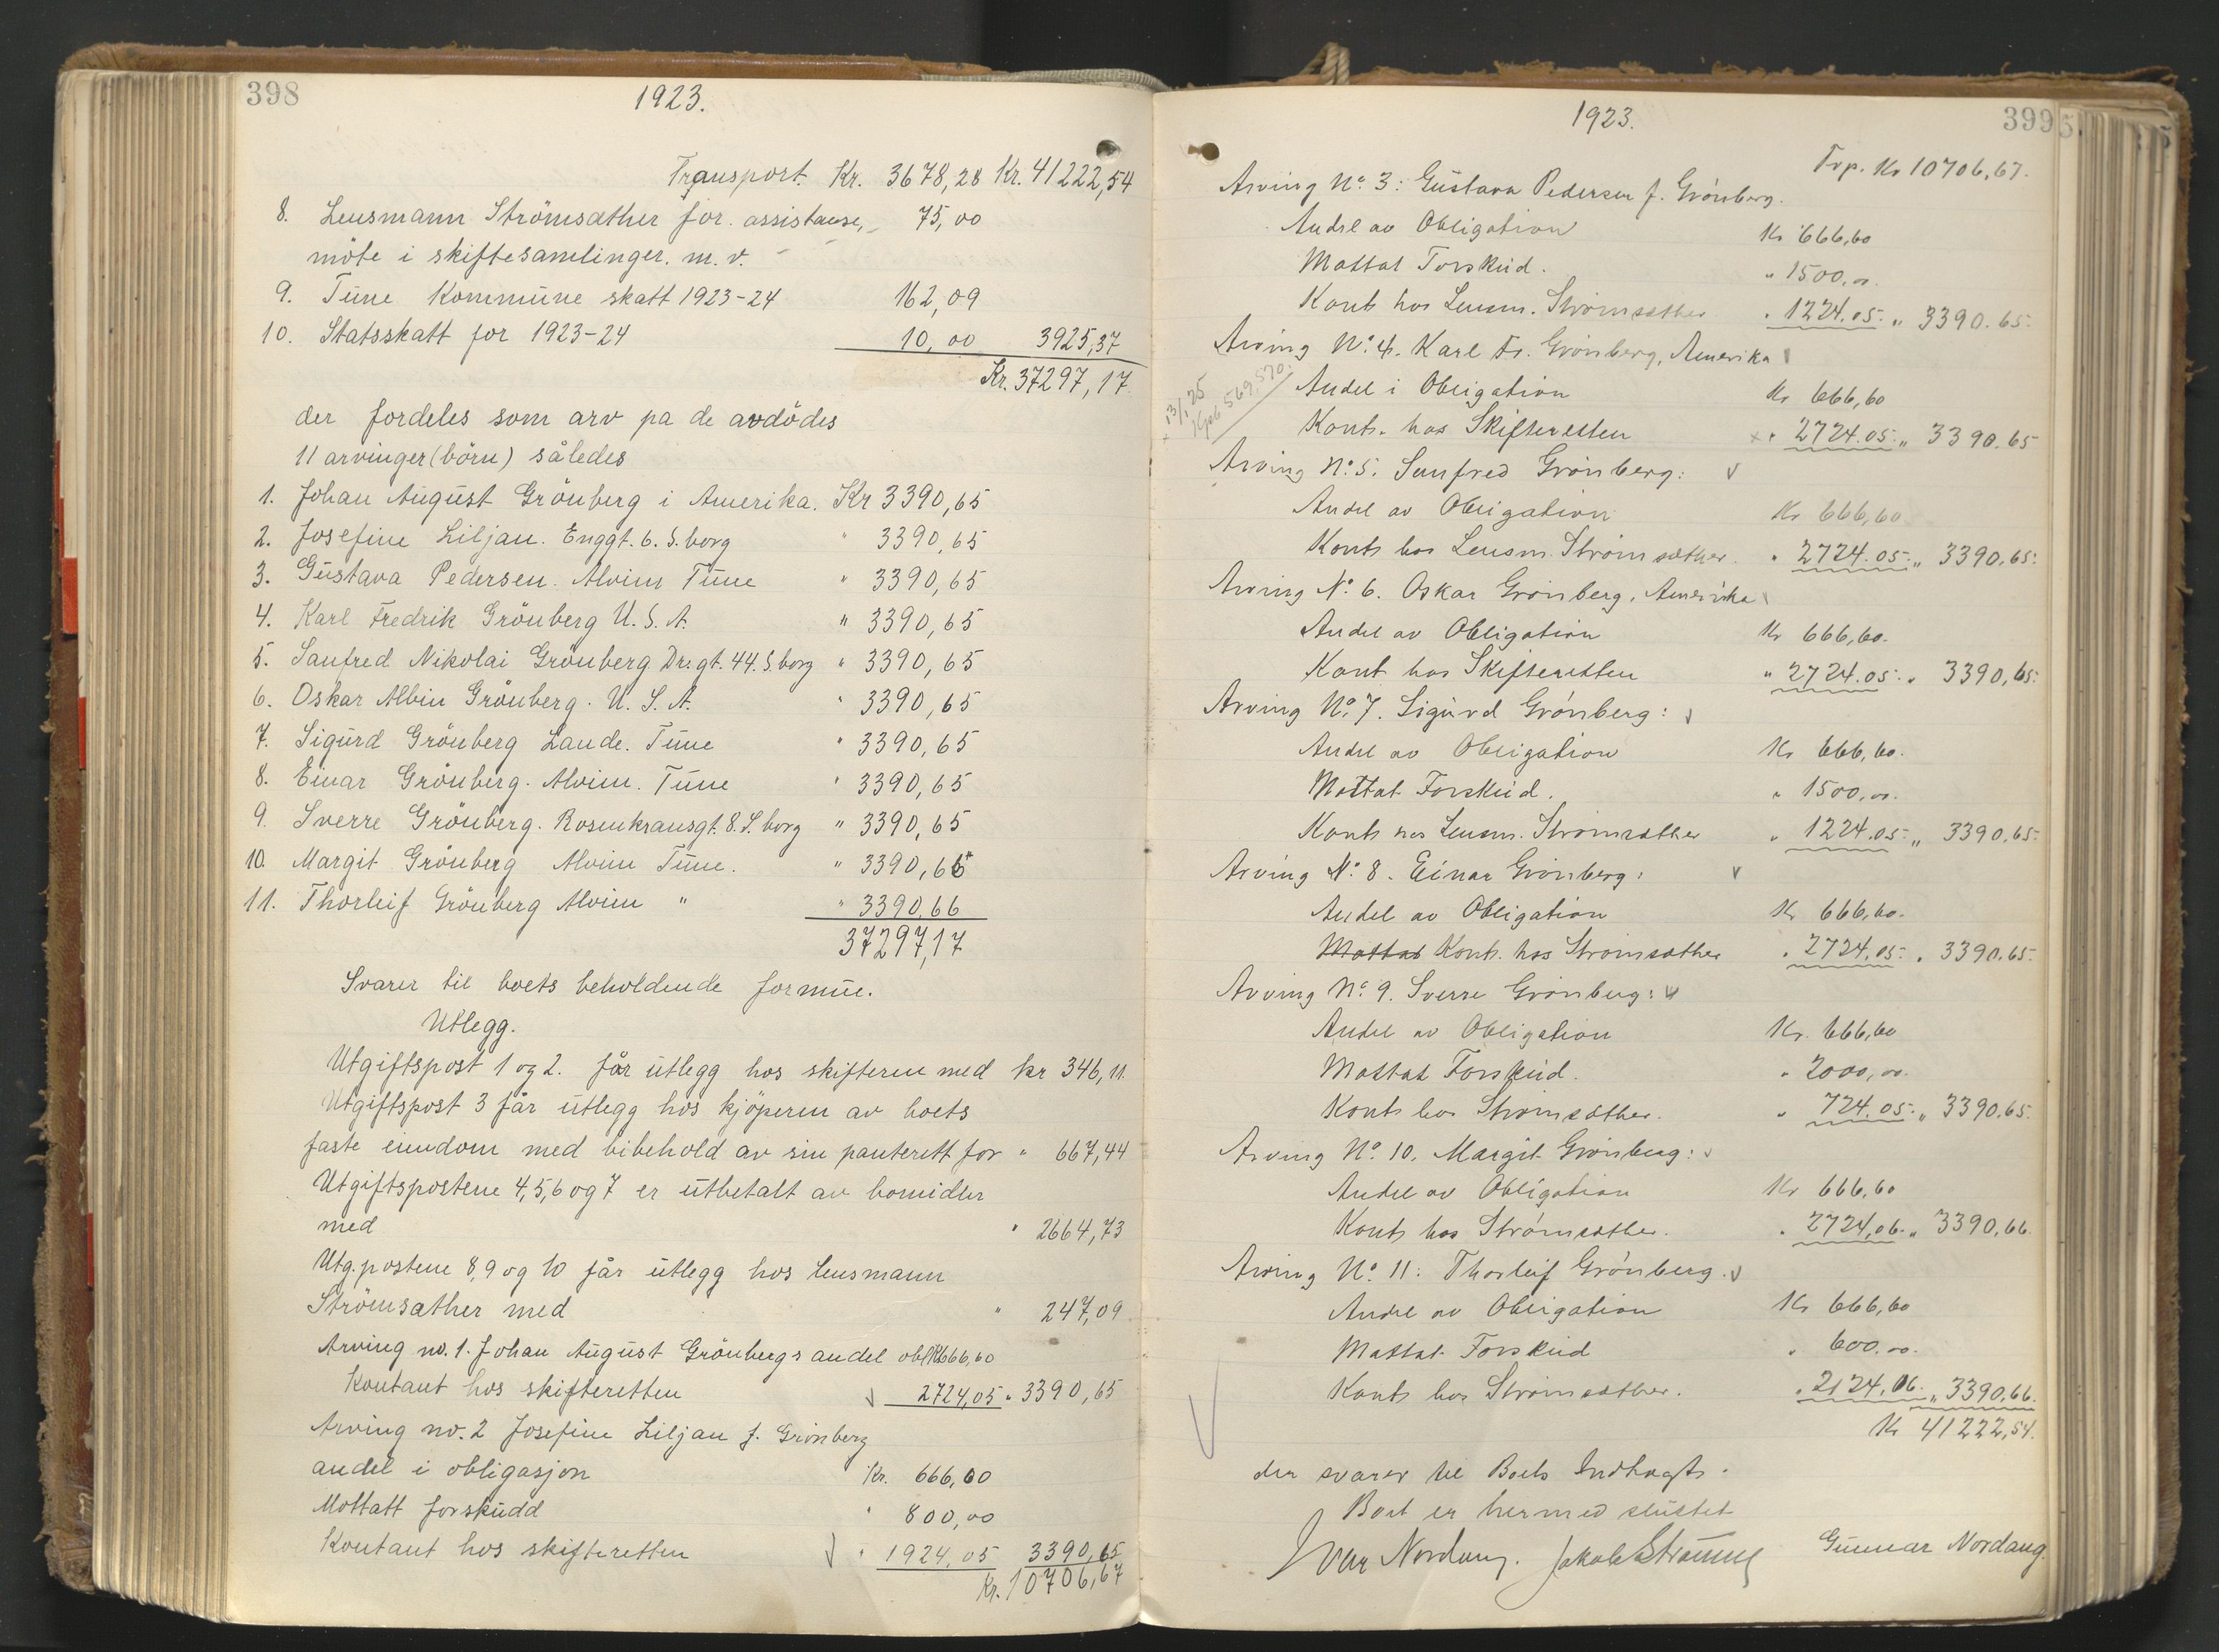 398
1923.
Transport. Kr. 3678,28 Kr. 41222,54
8. Lensmann Strömsæther for assistanse, 75,00
möte i skiftesamlinger. m. v.
9. Tune Kommune skatt 1923-24 162,09
10. Statsskatt for 1923-24 10,00 3925,37
Kr. 37297,17
der fordeles som arv pa de avdödes
11 arvinger (börn) således
1. Johan August Grönberg i Amerika. Kr 3390,65
2. Josefine Liljan. Enggt. 6. S.borg " 3390,65
3. Gustava Pedersen. Alvim Tune " 3390,65
4. Karl Fredrik Grönberg U. S. A. " 3390,65
5. Sanfred Nikolai Grönberg Dr.gt. 44. S.borg " 3390,65
6. Oskar Albin Grönberg. U. S. A. " 3390,65
7. Sigurd Grönberg Lande. Tune " 3390,65
8. Einar Grönberg. Alvim. Tune " 3390,65
9. Sverre Grönberg. Rosenkransgt. 8. S.borg " 3390,65
10. Margit Grönberg Alvim Tune. " 3390,66
11. Thorleif Grönberg Alvim " " 3390,66
37297,17
Svarer til boets beholdende formue.
Utlegg.
Utgiftspost 1 og 2. får utlegg hos skifteren med kr 346,11.
Utgiftspost 3 får utlegg hos kjöperen av boets
faste eiendom med bibehold av sin panterett for " 667,44
Utgiftspostene 4, 5, 6 og 7 er utbetalt av bomidler
med " 2664,73
Utg.postene 8, 9 og 10 får utlegg hos lensmann
Strömsæther med " 247,09
Arving no. 1. Johan August Grönbergs andel obl. K 666,60
Kontant hos skifteretten 2724,05 " 3390,65
Arving no. 2 Josefine Liljan f. Grönberg
andel i obligasjon Kr. 666,60
Mottatt forskudd " 800,00
Kontant hos skifteretten " 1924,05 3390,65
Kr. 10706,67
1923.
399
Trp. Kr 10706,67.
Arving No. 3: Gustava Pedersen f. Grönberg.
Andel av Obligation Kr 666,60
Mottat Forskud. " 1500,00.
Kont. hos Lensm. Strömsæther " 1224.05. " 3390.65.
Arving No. 4. Karl Fr. Grönberg, Amerika
Andel i Obligation Kr 666,60
Kont. hos Skifteretten " 2724.05. " 3390.65
Arving No. 5. Sanfred Grönberg:
Andel av Obligation Kr 666,60
Kont. hos Lensm. Strömsæther. " 2724.05. " 3390.65.
Arving No. 6. Oskar Grönberg, Amerika
Andel av Obligation Kr 666,60.
Kont hos Skifteretten " 2724.05. " 3390,65.
Arving No. 7. Sigurd Grönberg:
Andel av Obligation Kr 666,60.
Mottat Forskud. " 1500,00.
Kont. hos Lensm. Strömsæther " 1224.05. " 3390,65.
Arving No. 8. Einar Grönberg:
Andel av Obligation Kr 666,60.
Mottat Kont. hos Strömsæther " 2724,05. " 3390.65.
Arving No. 9. Sverre Grönberg:
Andel av Obligation Kr. 666,60
Mottat Forskud. " 2000,00.
Kont. hos Strömsæther. " 724.05. " 3390.65.
Arving No. 10. Margit Grönberg:
Andel av Obligation Kr 666,60
Kont. hos Strömsæther. " 2724,06. " 3390,66.
Arving No. 11: Thorleif Grönberg.
Andel av Obligation Kr 666,60
Mottat Forskud " 600.00.
Kont. hos Strömsæther. " 2124.06. " 3390,66.
Kr 41222,54.
der svarer til Boets Indtægt.
Boet er hermed sluttet
Ivar Nordaug. Jakob Gunnar Nordaug